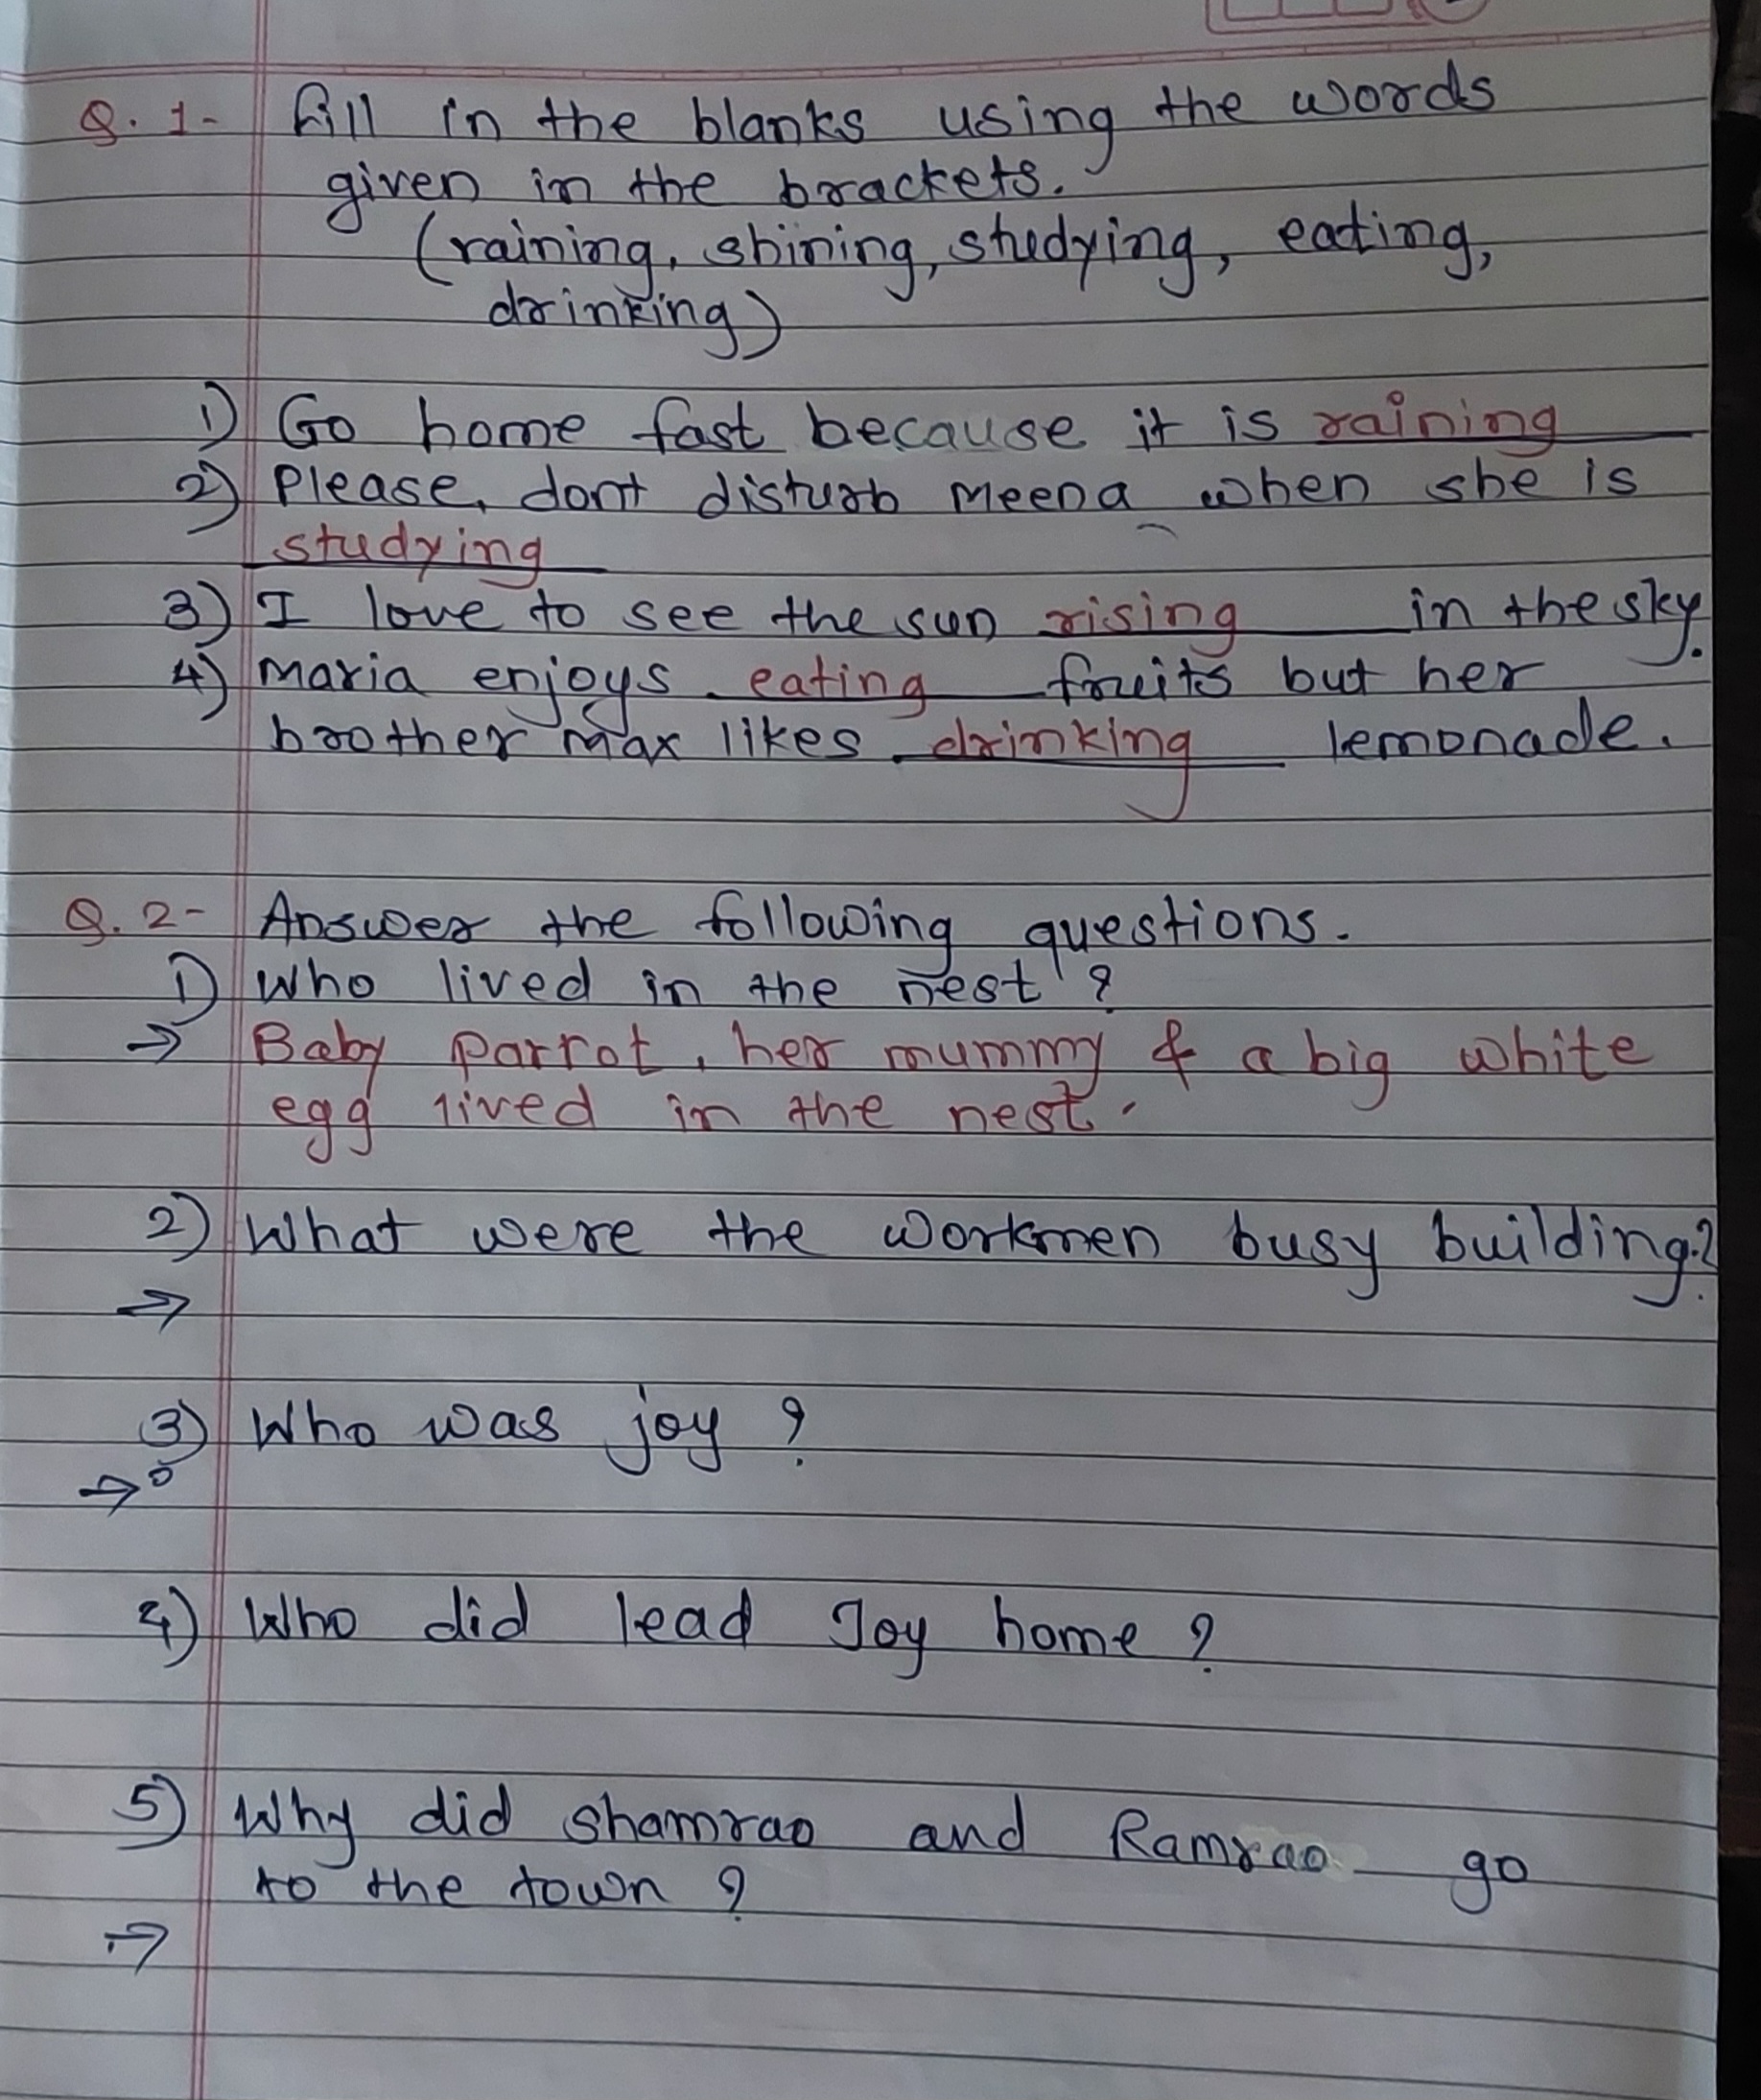 Q. 1- Fill in the blanks using the words
given in the brackets.
(raining, shining, studying, eating,
drinking)
1) Go home fast because it is raining
2) Please, dont disturb Meena when she is
studying
3) I love to see the sun rising in the sky.
4) Maria enjoys eating fruits but her
brother Max likes drinking lemonade.
Q. 2- Answer the following questions.
1) Who lived in the nest ?
→ Baby parrot, her mummy & a big white
egg lived in the nest.
2) What were the workmen busy building?
→
3) Who was joy ?
→
4) Who did lead Joy home ?
5) Why did Shamrao and Ramrao go
to the town ?
→